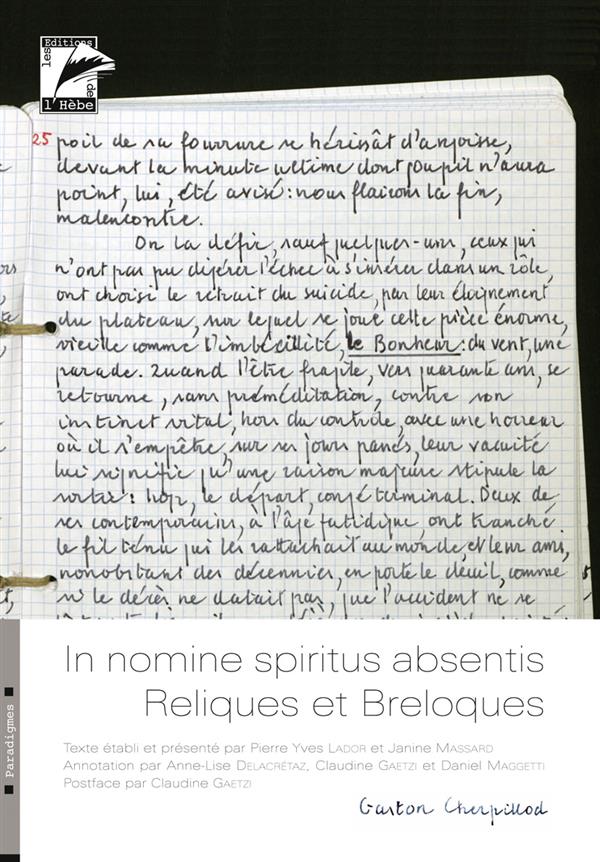 les Editions
de
l'Hèbe
25 poil de sa fourrure se hérissât d'angoisse,
devant la minute ultime dont goupil n'aura
point, lui, été avisé : nous flairons la fin,
malencontre.
On la défie, sauf quelques-uns, ceux qui
n'ont pas pu digérer l'échec à s'insérer dans un rôle,
ont choisi le retrait du suicide, par leur éloignement
du plateau, sur lequel se joue cette pièce énorme,
vieille comme l'imbécillité, le Bonheur : du vent, une
parade. Quand l'être fragile, vers quarante ans, se
retourne, sans préméditation, contre son
instinct vital, hors du contrôle, avec une horreur
où il s'empêtre, sur ses jours passés, leur vacuité
lui signifie qu'une raison majeure stipule la
sortie : hop, le départ, congé terminal. Deux de
ses contemporains, à l'âge fatidique ont tranché
le fil ténu qui les rattachait au monde, et leur ami,
nonobstant des décennies, en porte le deuil, comme
si le décès ne datait pas, que l'accident ne se
In nomine spiritus absentis
Reliques et Breloques
Texte établi et présenté par Pierre Yves LADOR et Janine MASSARD
Annotation par Anne-Lise DELACRÉTAZ, Claudine GAETZI et Daniel MAGGETTI
Postface par Claudine GAETZI
Gaston Cherpillod
Paradigmes